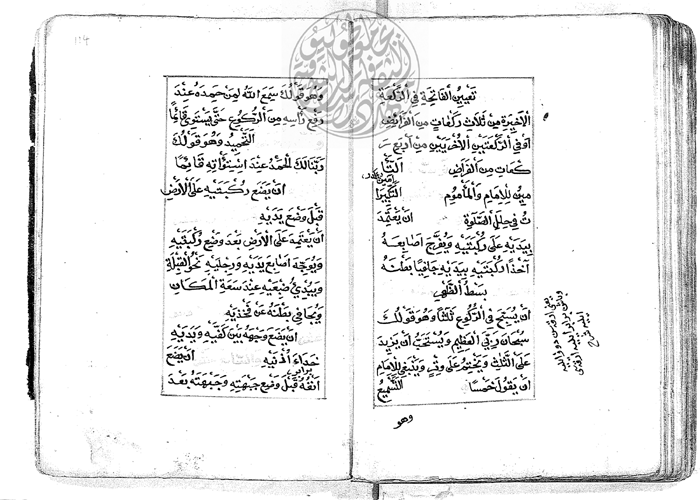 تعيين الفاتحة في الركعة
الاخيرة من ثلاث ركعات من الفرائض
او في الركعتين الاخريين من اربع ر
كعات من الفرائض التأ
مين للامام والمأموم التكبيرا
ت في خلل الصلوة ان يعتمد
بيديه على ركبتيه ويفرج اصابعه
آخذا ركبتيه بيديه جافيا بطنه
بسط الظهر
ان يسبح في الركوع ثلثا وهو قولك
سبحان ربي العظيم ويستحب ان يزيد
على الثلث ويختم على وتر وينبغي للامام
ان يقول خمسا التسميع
وهو
وهو قولك سمع الله لمن حمده عند
رفع رأسه من الركوع حتى يستوي قائما
التحميد وهو قولك
ربنا لك الحمد عند استوائه قائما
ان يضع ركبتيه على الارض
قبل وضع يديه
ان يعتمد على الارض بعد وضع ركبتيه
ويوجه اصابع يديه ورجليه نحو القبلة
ويبدي ضبعيه عند سعة المكان
ويجافي بطنه عن فخذيه
ان يضع وجهه بين كفيه ويديه
حذاء اذنيه ان يضع
انفه قبل وضع جبهته وجبهته بعد